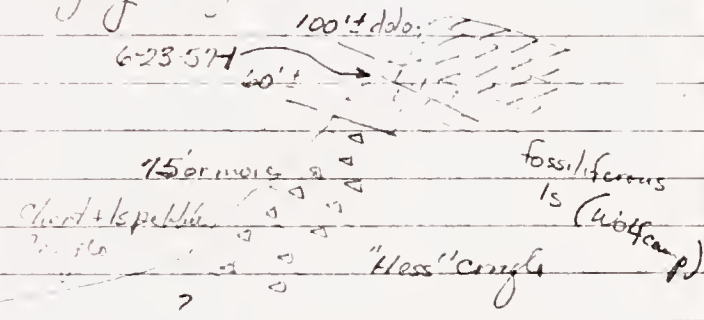 100'± dolo.
6-23-57-1
60'±
75' or more
fossiliferous
ls (Wolfcamp)
Chert + ls pebble
"Hess" cngl
?